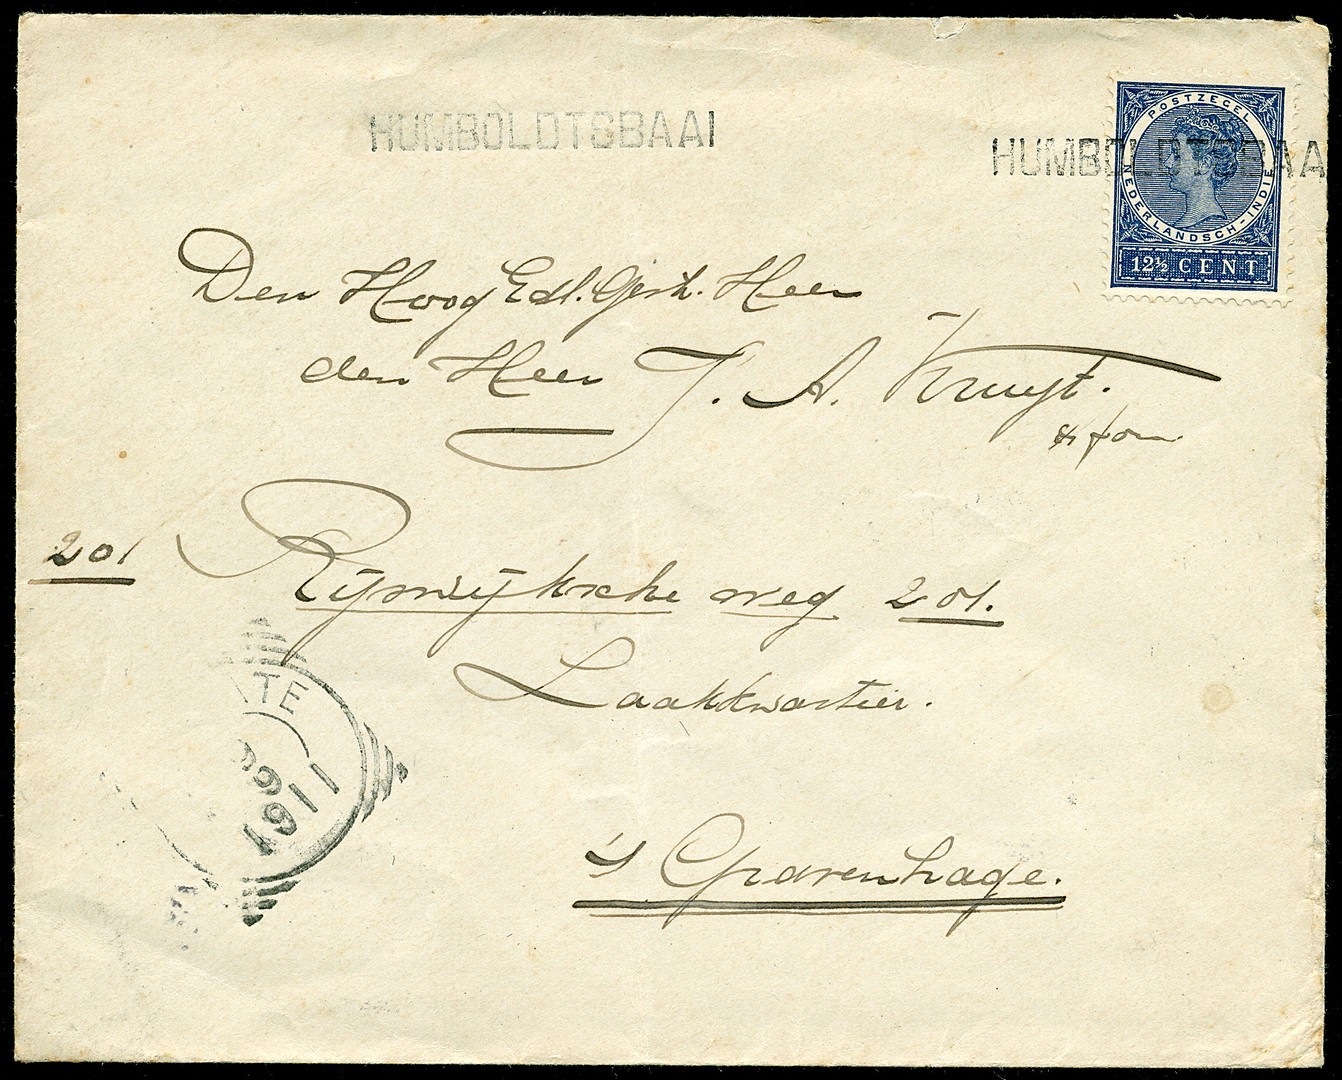 HUMBOLDTSBAAI
HUMBOLDTSBAA
POSTZEGEL
NEDERLANDSCH-INDIE
12½ CENT
Den Hoog Edl. Gestr. Heer
den Heer J. A. Kruyt.
201
Rijswijksche weg 201.
Laakkwartier.
's Gravenhage.
TE
1911